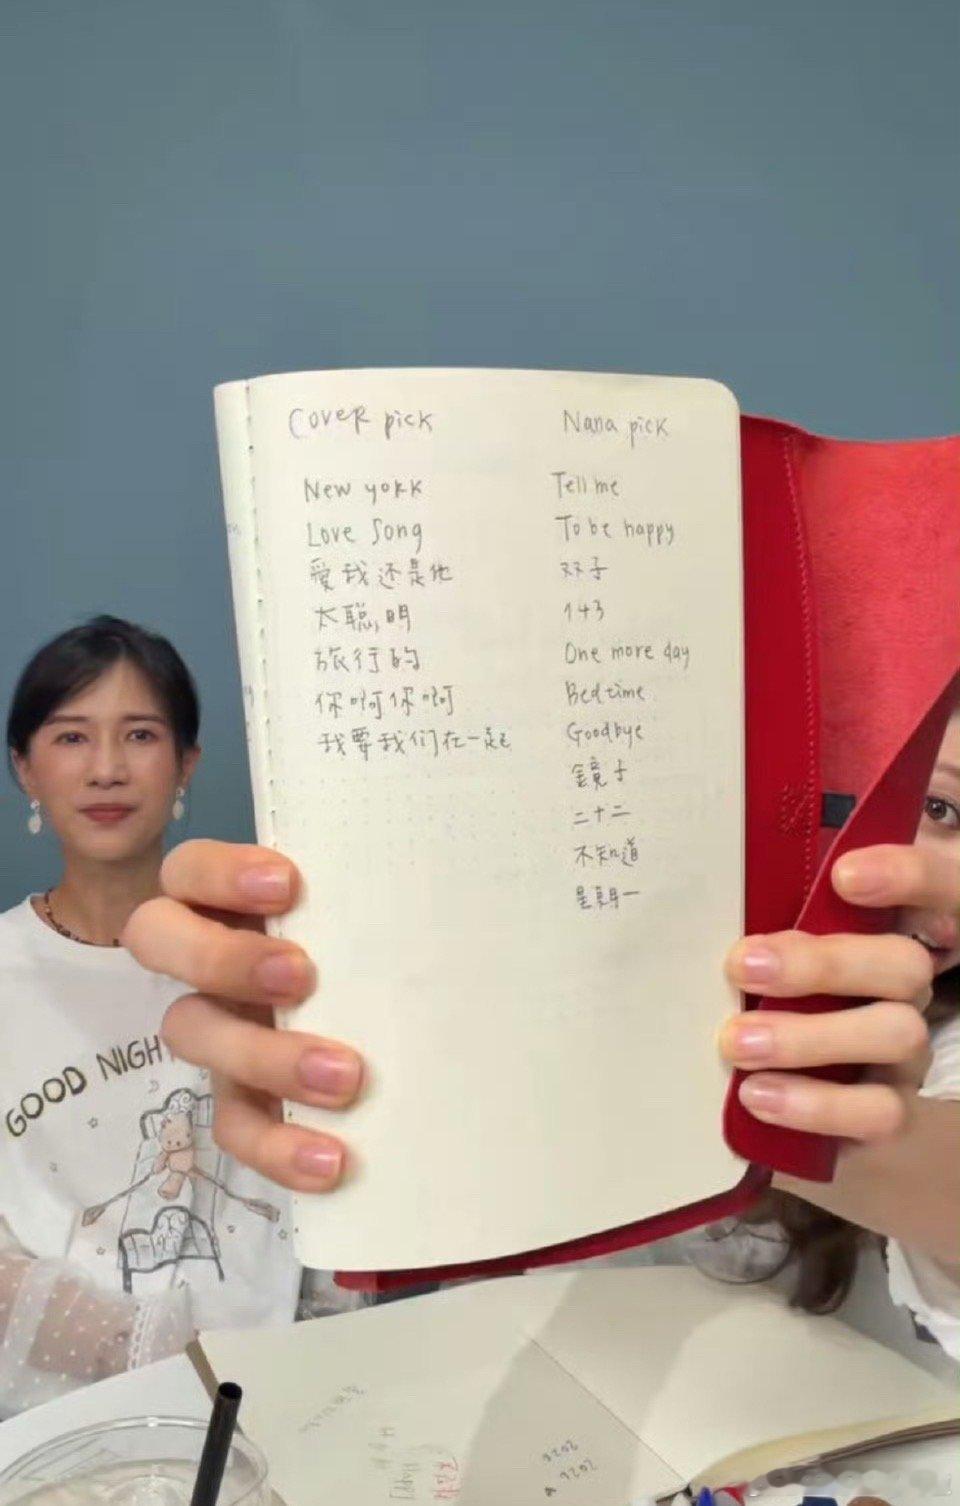 Cover pick
New york
Love Song
爱我还是他
太聪明
旅行的
你啊你啊
我要我们在一起
Nana pick
Tell me
To be happy
双子
143
One more day
Bedtime
Goodbye
鏡子
二十二
不知道
星期一
GOOD NIGHT